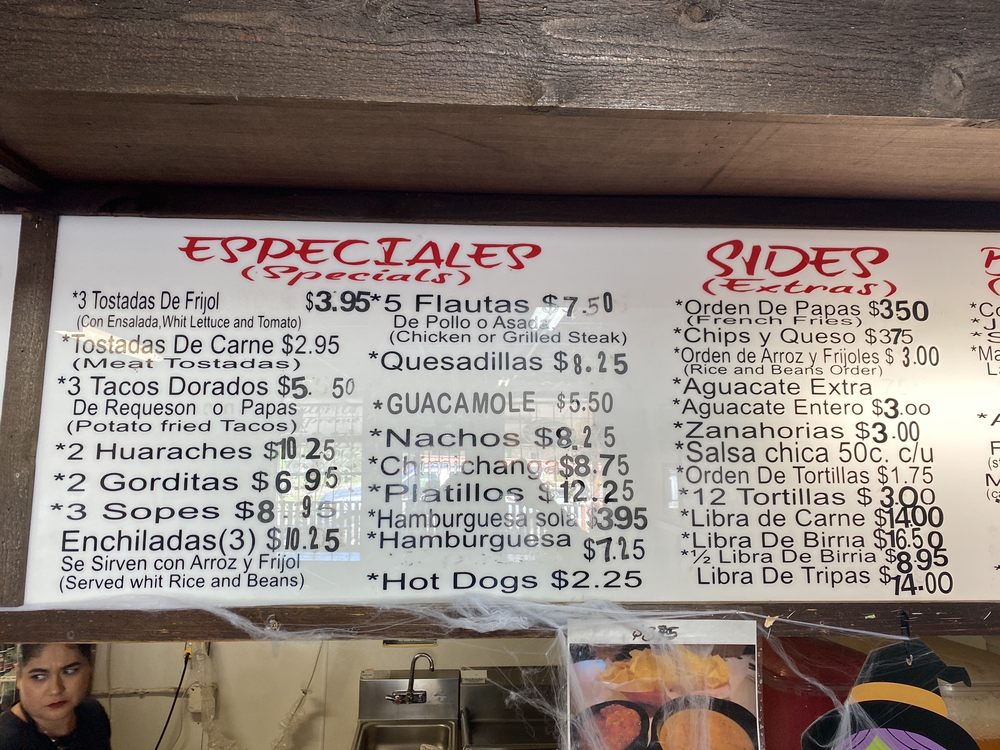 ESPECIALES
(Specials)
*3 Tostadas De Frijol $3.95
(Con Ensalada,Whit Lettuce and Tomato)
*Tostadas De Carne $2.95
(Meat Tostadas)
*3 Tacos Dorados $5. 50
De Requeson o Papas
(Potato fried Tacos)
*2 Huaraches $10.25
*2 Gorditas $6.95
*3 Sopes $8.95
Enchiladas(3) $10.25
Se Sirven con Arroz y Frijol
(Served whit Rice and Beans)
*5 Flautas $7.50
De Pollo o Asada
(Chicken or Grilled Steak)
*Quesadillas $8.25
*GUACAMOLE $5.50
*Nachos $8.25
*Chimichanga $8.75
*Platillos $12.25
*Hamburguesa sola $395
*Hamburguesa $7.25
*Hot Dogs $2.25
SIDES
(Extras)
*Orden De Papas $350
(French Fries)
*Chips y Queso $375
*Orden de Arroz y Frijoles $ 3.00
(Rice and Beans Order)
*Aguacate Extra
*Aguacate Entero $3.00
*Zanahorias $3.00
*Salsa chica 50c. c/u
*Orden De Tortillas $1.75
*12 Tortillas $3.00
*Libra de Carne $14.00
*Libra De Birria $16.50
*½ Libra De Birria $8.95
Libra De Tripas $14.00